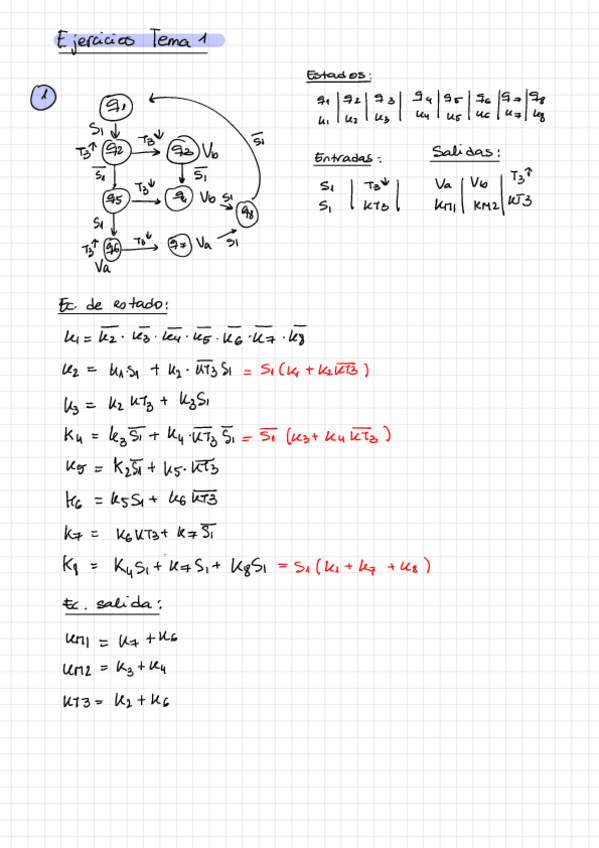 Ejercicios Tema 1
1
q1
S1
T3↑ q2 T3↓ q3 Vb
S̅1̅ S̅1̅ S̅1̅
q5 T3↓ q4 Vb S1 q8
S1
T3↑ q6 T3↓ q7 Va S1
Va
Estados:
q1 | q2 | q3 | q4 | q5 | q6 | q7 | q8
K1 | K2 | K3 | K4 | K5 | K6 | K7 | K8
Entradas:
S1 | T3↓ |
S1 | KT3 |
Salidas:
Va | Vb | T3↑
KM1 | KM2 | KT3
Ec. de estado:
K1 = K̅2̅ · K̅3̅ · K̅4̅ · K̅5̅ · K̅6̅ · K̅7̅ · K̅8̅
K2 = K1S1 + K2 · K̅T̅3̅ S1 = S1 (K1 + K2 K̅T̅3̅)
K3 = K2 KT3 + K3S1
K4 = K3 S̅1̅ + K4 · K̅T̅3̅ S̅1̅ = S̅1̅ (K3 + K4 K̅T̅3̅)
K5 = K2 S̅1̅ + K5 · K̅T̅3̅
K6 = K5S1 + K6 K̅T̅3̅
K7 = K6 KT3 + K7 S̅1̅
K8 = K4S1 + K7S1 + K8S1 = S1 (K1 + K7 + K8)
Ec. salida:
KM1 = K7 + K6
KM2 = K3 + K4
KT3 = K2 + K6